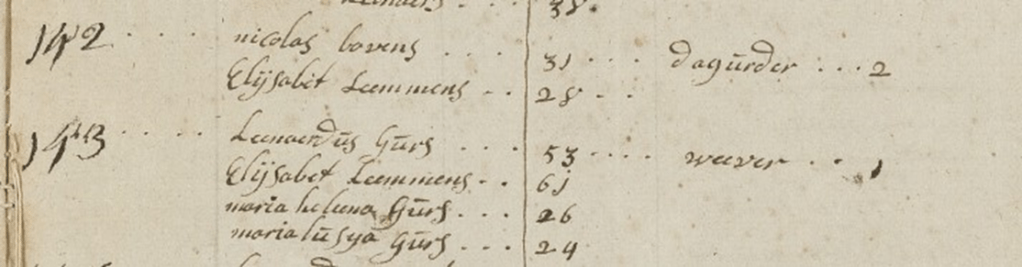 38.
142 . . . . nicolas bovens . . . 31 . . . dagurder . . . 2
Elijsabet Lemmens . . 28 . .
143 . . . . Leenaerdus Gurs . . . 53 . . . . weever . . 1
Elijsabet Lemmens . . 61
maria helena Gurs . . . 26
maria lusya Gurs . . . 24